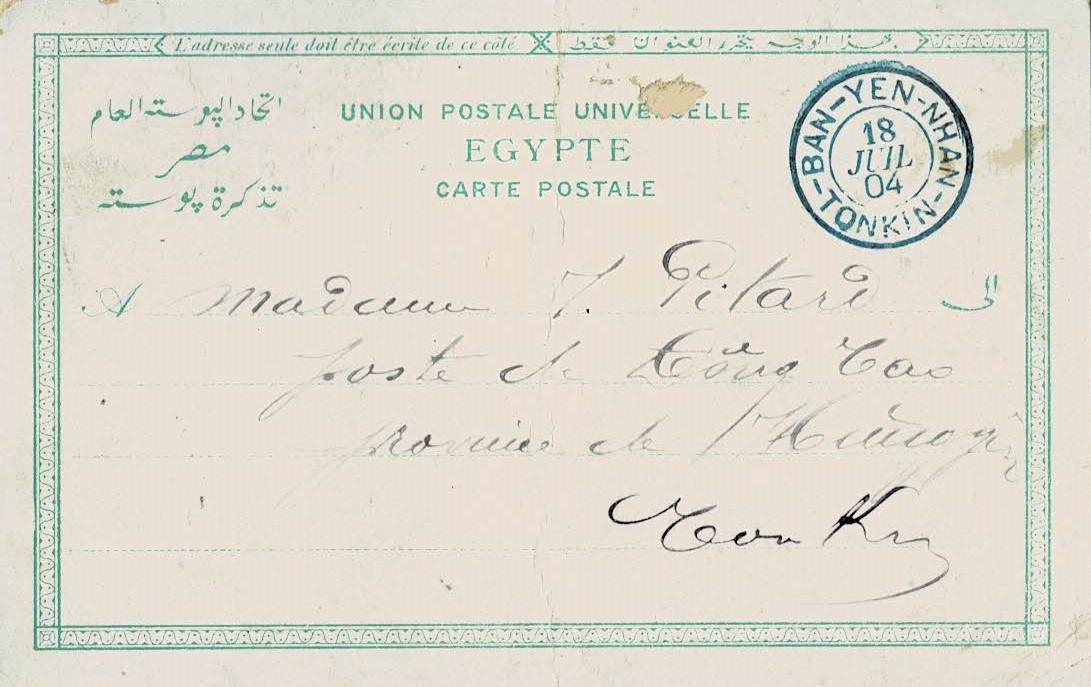 L'adresse seule doit être écrite de ce côté
بهذا الوجه يحرر العنوان فقط
اتحاد البوسته العام
مصر
تذكرة بوسته
UNION POSTALE UNIVERSELLE
EGYPTE
CARTE POSTALE
BAN-YEN-NHAN
18
JUIL
04
TONKIN
A Madame J. Pitard الى
poste de Dông Cao
province de
Tonkin